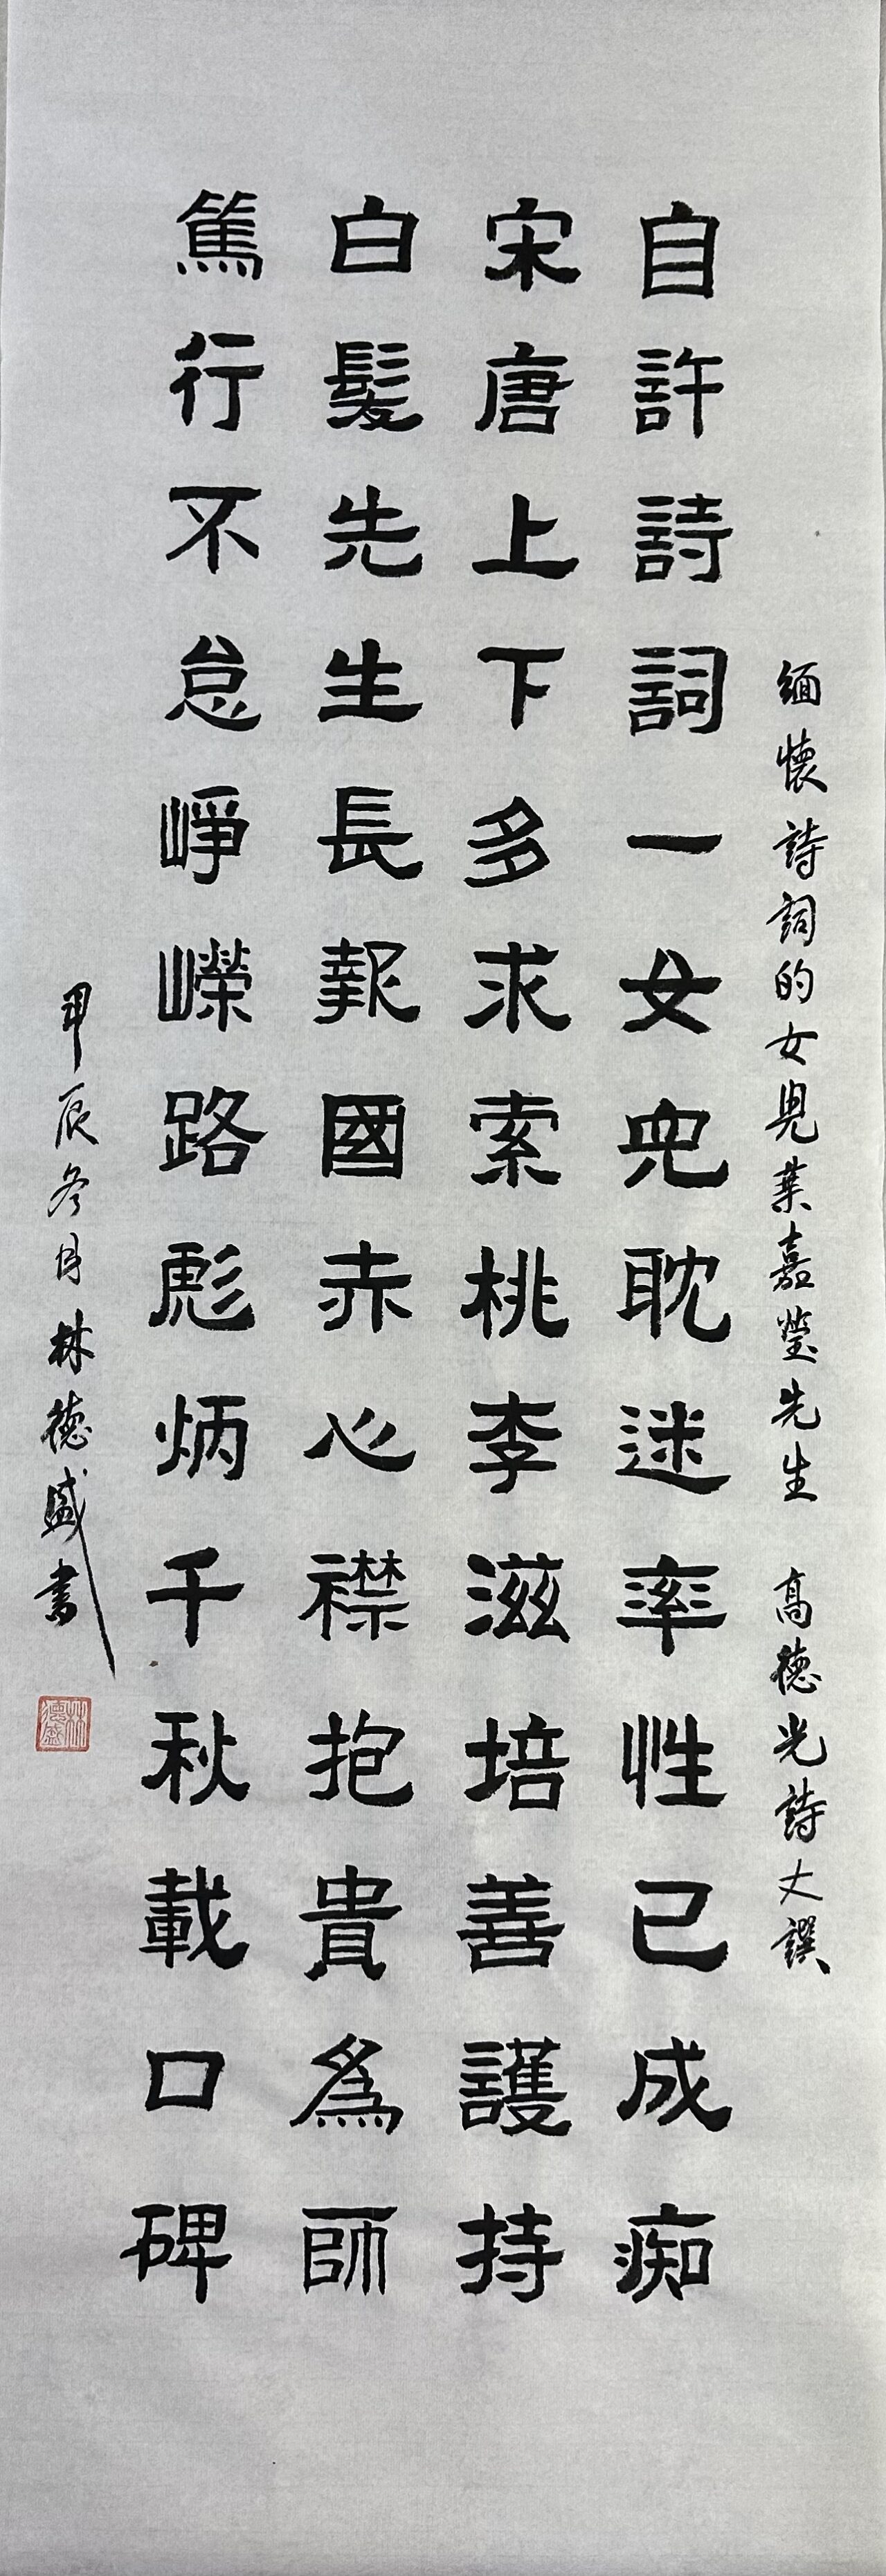 缅懷詩詞的女兒葉嘉瑩先生 高德光詩丈譔
自許詩詞一女兒耽迷率性已成痴
宋唐上下多求索桃李滋培善護持
白髮先生長報國赤心襟抱貴為師
篤行不怠崢嶸路彪炳千秋載口碑
甲辰冬月林德盛書
林德盛